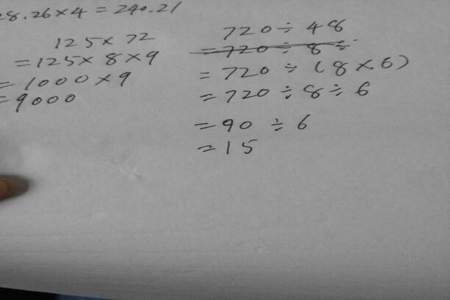 8.26×4=240.21
125×72
=125×8×9
=1000×9
=9000
720÷48
=720÷8÷
=720÷(8×6)
=720÷8÷6
=90÷6
=15